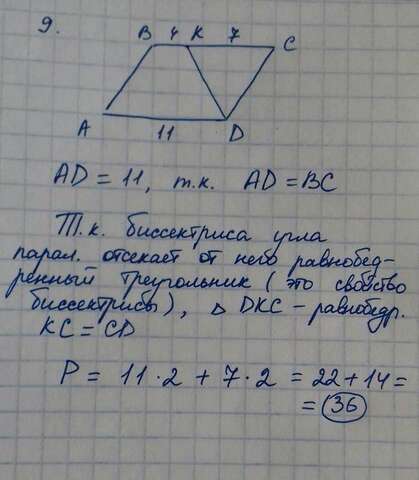 9.
B 4 K 7 C
A 11 D
AD = 11, т.к. AD = BC
Т.к. биссектриса угла
парал. отсекает от него равнобед-
ренный треугольник (это свойство
биссектрисы), △ DKC – равнобедр.
KC = CD
P = 11 · 2 + 7 · 2 = 22 + 14 =
= 36